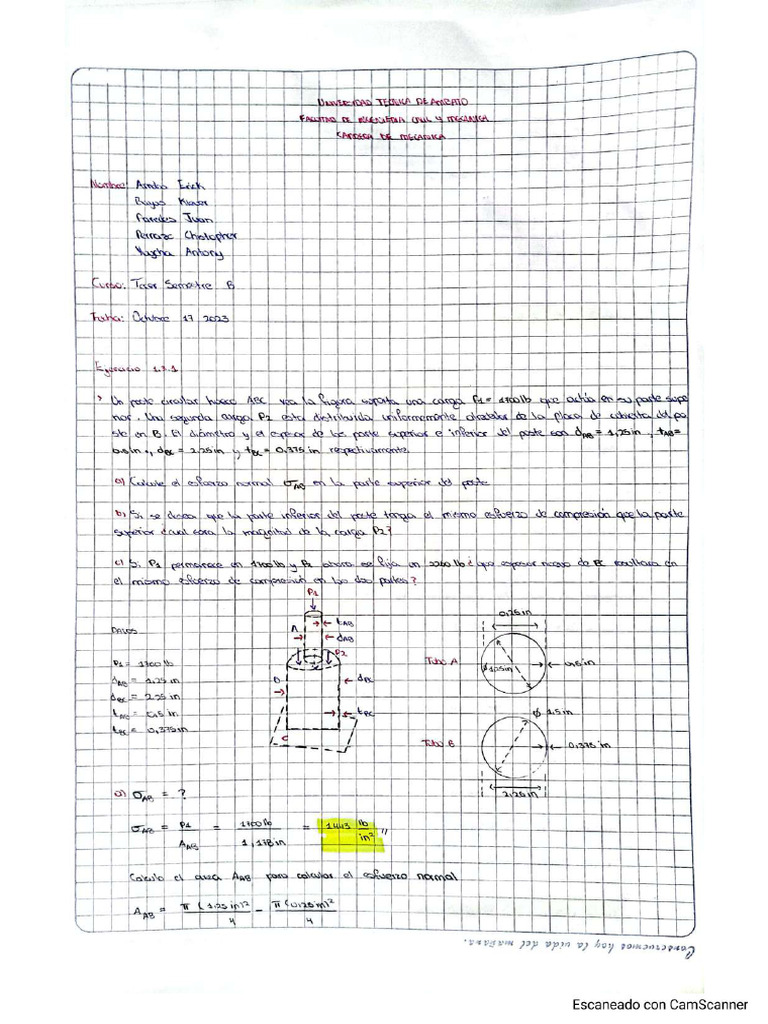 UNIVERSIDAD TECNICA DE AMBATO
FACULTAD DE INGENIERIA CIVIL Y MECANICA
CARRERA DE MECANICA
Nombre: Erick
Paredes Juan
Christopher
Antony
Curso: Tercer Semestre B
Fecha: Octubre 17 2023
Ejercicio 1.3.1
Un poste circular hueco ABC, vea la figura soporta una carga P1 = 1700 lb que actúa en su parte supe
rior. Una segunda carga P2 está distribuida uniformemente alrededor de la placa de cubierta del po
ste en B. El diámetro y el espesor de las parte superior e inferior del poste son dAB = 1,25 in , tAB=
0.5 in , dBC = 2.25 in y tBC = 0,375 in respectivamente.
a) Calcule el esfuerzo normal σAB en la parte superior del poste
b) Si se desea que la parte inferior del poste tenga el mismo esfuerzo de compresión que la parte
superior ¿cual sera la magnitud de la carga P2?
c) Si P1 permanece en 1700 lb y P2 ahora se fija en 2260 lb ¿ que espesor nuevo de BC resultara en
el mismo esfuerzo de compresión en las dos partes?
P1
DATOS
A
tAB
dAB
P2
0,25 in
P1 = 1700 lb
Tubo A
ϕ 1.25 in
0.5 in
dAB = 1,25 in
B
dBC
dBC = 2.25 in
tAB = 0,5 in
tBC
ϕ 1.5 in
tBC = 0,375 in
C
Tubo B
0,375 in
2,25 in
a) σAB = ?
σAB = P1 / AAB = 1700 lb / 1,178 in = 1443 lb / in² //
Calculo el area AAB para calcular el esfuerzo normal
AAB = π (1.25 in)² / 4 - π (0.25 in)² / 4
Conservemos hoy la vida del mañana.
Escaneado con CamScanner